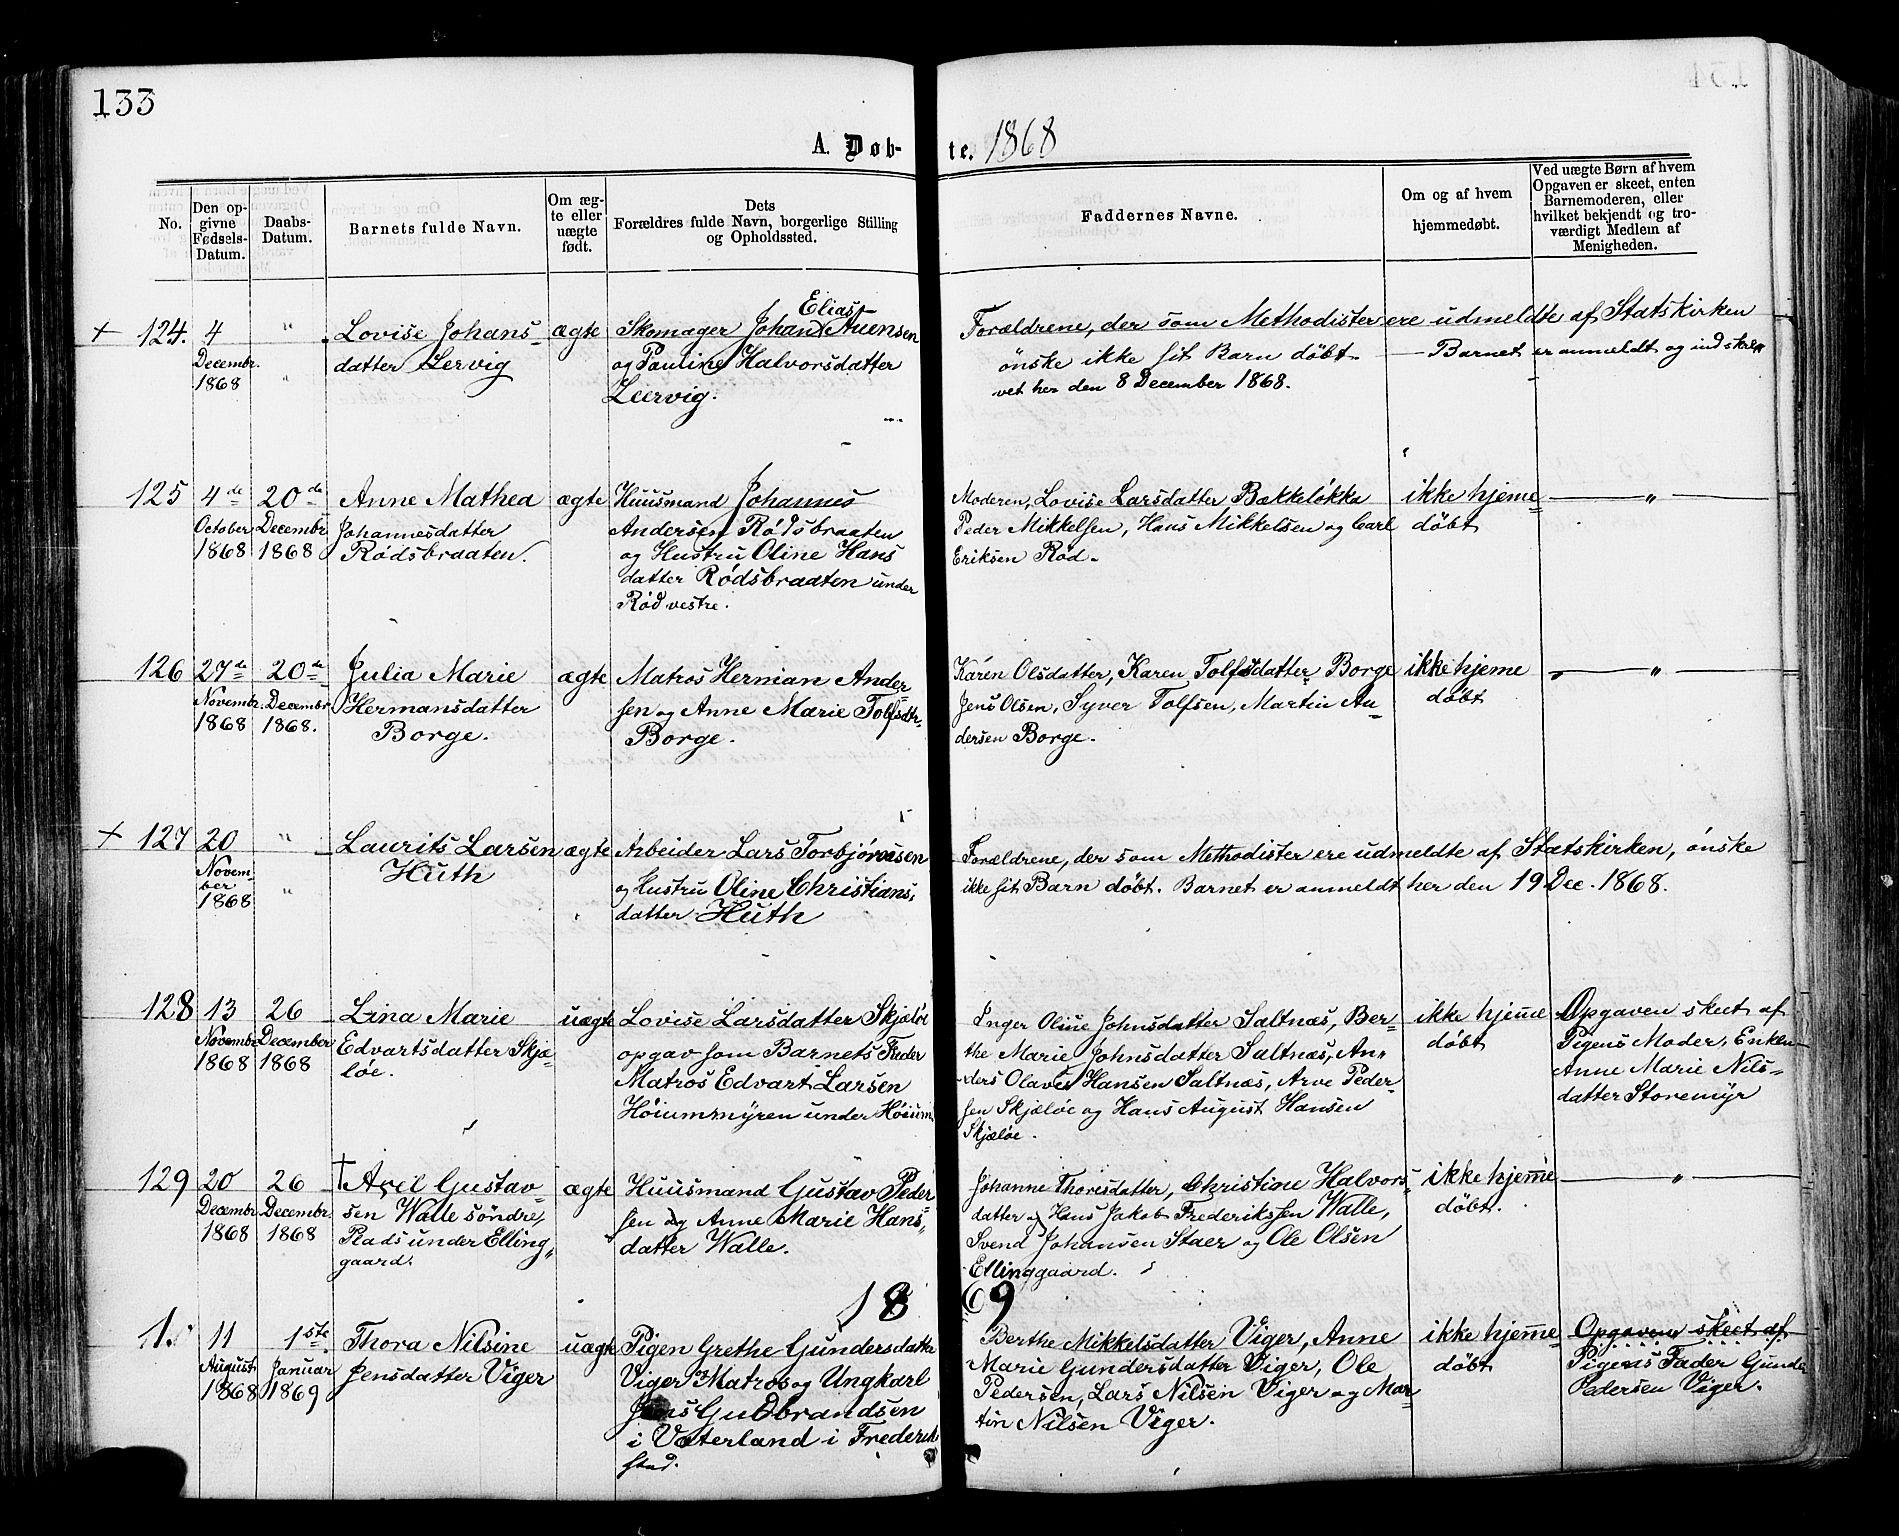 133
A. Døb- te. 1868
No.
Den opgivne Fødsels-Datum.
Daabs-Datum.
Barnets fulde Navn.
Om ægte eller uægte født.
Dets Forældres fulde Navn, borgerlige Stilling og Opholdssted.
Faddernes Navne.
Om og af hvem hjemmedøbt.
Ved uægte Børn af hvem Opgaven er skeet, enten Barnemoderen, eller hvilket bekjendt og troværdigt Medlem af Menigheden.
+ 124. 4 Decembr. 1868
" "
Lovise Johans-
datter Lervig
ægte
Elias
Skomager Johan
og Pauline Halvorsdatter
Leervig.
Forældrene, der som Methodister ere udmeldte af Statskirken
ønske ikke sit Barn døbt. — Barnet er anmeldt og indskre-
vet her den 8 December 1868.
125 4de October 1868
20de Decembr 1868
Anne Mathea
Johannesdatter
Rødsbraaten.
ægte
Huusmand Johannes
Andersen Rødsbraaten
og Hustru Oline Hans
datter Rødsbraaten under
Rød vestre.
Moderen, Lovise Larsdatter Bækkeløkka
Peder Mikkelsen, Hans Mikkelsen og Carl
Eriksen Rød.
ikke hjeme
døbt
— " —
126 27de Novembr. 1868
20de Decembr 1868.
Julia Marie
Hermansdatter
Borge.
ægte
Matros Herman Ander-
sen og Anne Marie Tolfsdtr.
Borge.
Karen Olsdatter, Karen Tolfsdatter Borge
Jens Olsen, Syver Tolfsen, Martin An-
dersen Borge.
ikke hjeme
døbt
— " —
+ 127 20 November 1868
" "
Laurits Larsen
Huth
ægte
Arbeider Lars Torbjørnsen
og Hustru Oline Christians,
datter Huth
Forældrene, der som Methodister ere udmeldte af Statskirken, ønske
ikke sit Barn døbt. Barnet er anmeldt her den 19 Dec. 1868.
128 13 Novembr 1868
26 December 1868
Lina Marie
Edvartsdatter Skjæ
løe.
uægte
Lovise Larsdatter Skjæløe
opgav som Barnets Fader
Matros Edvart Larsen
Høiumsmyren under Høium
Inger Oline Johnsdatter Saltnæs, Ber-
the Marie Johnsdatter Saltnæs, An-
ders Olaves Hansen Saltnæs, Arve Peder-
sen Skjæløe og Hans August Hansen
Skjæløe.
ikke hjeme
døbt
Opgaven skeet af
Pigens Moder, Enken
Anne Marie Nils-
datter Storemyr
129 20 Decembr 1868
26 Decembr. 1868
† Axel Gustav-
sen Walle søndre,
Plads under Elling-
gaard.
ægte
Huusmand Gustav Peder
sen og Anne Marie Hans,
datter Walle.
Johanne Thorisdatter, Christine Halvors-
datter og Hans Jakob Frederikssen Walle,
Svend Johansen Staer og Ole Olsen
Ellinggaard.
ikke hjeme
døbt.
— " —
1869
1. 11 August 1868
1ste Januar 1869
Thora Nilsine
Jensdatter Viger
uægte
Pigen Grethe Gundersdatter
Viger Matros og Ungkarl
Jens Gudbrandsen
i Vaterland i Frederik
stad.
Berthe Mikkelsdatter Viger, Anne
Marie Gundersdatter Viger, Ole
Pedersen, Lars Nilsen Viger og Mar-
tin Nilsen Viger.
ikke hjeme
døbt
Opgaven skeet af
Pigens Fader Gunder
Pedersen Viger.